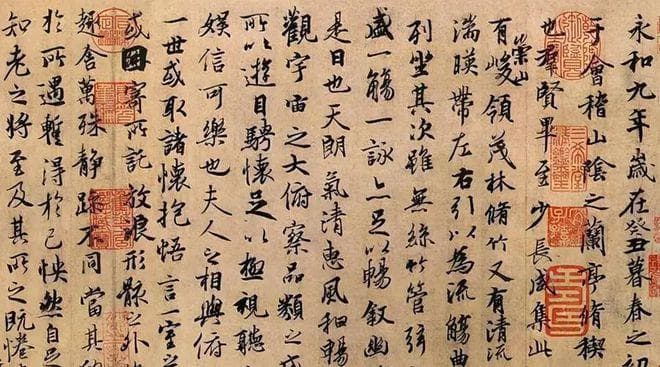 永和九年歲在癸丑暮春之初
于會稽山陰之蘭亭脩稧
也羣賢畢至少長咸集此
有崇山峻領茂林脩竹又有清流
湍暎帶左右引以為流觴曲
列坐其次雖無絲竹管弦
盛一觴一詠亦足以暢敘幽
是日也天朗氣清惠風和暢
觀宇宙之大俯察品類之
所以遊目騁懷足以極視聽
娛信可樂也夫人之相與俯
一世或取諸懷抱悟言一室之
或因寄所託放浪形骸之外
趣舍萬殊靜躁不同當其
於所遇暫得於己怏然自足
知老之將至及其所之既惓